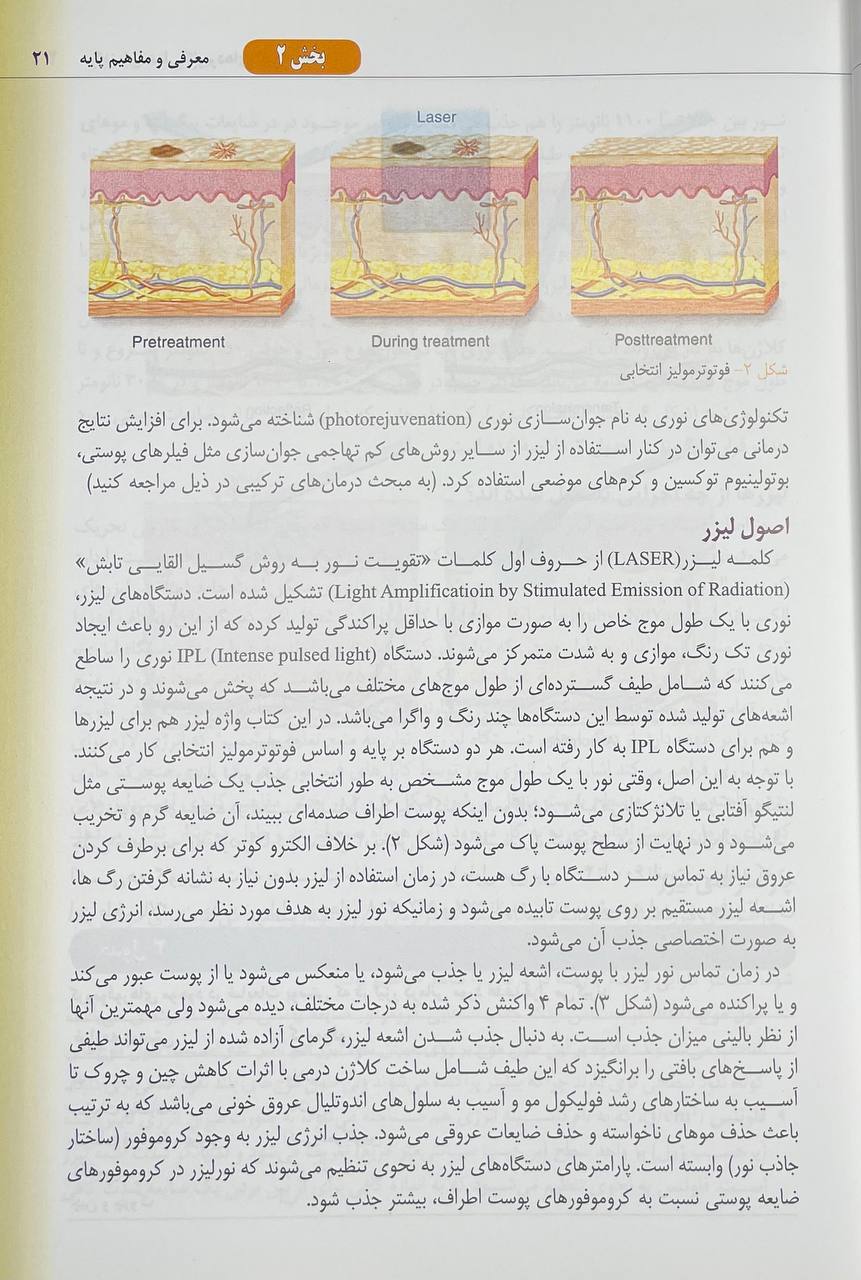 بخش ۲
معرفی و مفاهیم پایه
۲۱
Laser
Pretreatment
During treatment
Posttreatment
شکل ۲- فوتوترمولیز انتخابی
تکنولوژی‌های نوری به نام جوان‌سازی نوری (photorejuvenation) شناخته می‌شود. برای افزایش نتایج
درمانی می‌توان در کنار استفاده از لیزر از سایر روش‌های کم تهاجمی جوان‌سازی مثل فیلرهای پوستی،
بوتولینیوم توکسین و کرم‌های موضعی استفاده کرد. (به مبحث درمان‌های ترکیبی در ذیل مراجعه کنید)
اصول لیزر
کلمه لیزر(LASER) از حروف اول کلمات «تقویت نور به روش گسیل القایی تابش»
(Light Amplificatioin by Stimulated Emission of Radiation) تشکیل شده است. دستگاه‌های لیزر،
نوری با یک طول موج خاص را به صورت موازی با حداقل پراکندگی تولید کرده که از این رو باعث ایجاد
نوری تک رنگ، موازی و به شدت متمرکز می‌شوند. دستگاه IPL (Intense pulsed light) نوری را ساطع
می‌کنند که شامل طیف گسترده‌ای از طول موج‌های مختلف می‌باشد که پخش می‌شوند و در نتیجه
اشعه‌های تولید شده توسط این دستگاه‌ها چند رنگ و واگرا می‌باشد. در این کتاب واژه لیزر هم برای لیزرها
و هم برای دستگاه IPL به کار رفته است. هر دو دستگاه بر پایه و اساس فوتوترمولیز انتخابی کار می‌کنند.
با توجه به این اصل، وقتی نور با یک طول موج مشخص به طور انتخابی جذب یک ضایعه پوستی مثل
لنتیگو آفتابی یا تلانژکتازی می‌شود؛ بدون اینکه پوست اطراف صدمه‌ای ببیند، آن ضایعه گرم و تخریب
می‌شود و در نهایت از سطح پوست پاک می‌شود (شکل ۲). بر خلاف الکترو کوتر که برای برطرف کردن
عروق نیاز به تماس سر دستگاه با رگ هست، در زمان استفاده از لیزر بدون نیاز به نشانه گرفتن رگ ها،
اشعه لیزر مستقیم بر روی پوست تابیده می‌شود و زمانیکه نور لیزر به هدف مورد نظر می‌رسد، انرژی لیزر
به صورت اختصاصی جذب آن می‌شود.
در زمان تماس نور لیزر با پوست، اشعه لیزر یا جذب می‌شود، یا منعکس می‌شود یا از پوست عبور می‌کند
و یا پراکنده می‌شود (شکل ۳). تمام ۴ واکنش ذکر شده به درجات مختلف، دیده می‌شود ولی مهمترین آنها
از نظر بالینی میزان جذب است. به دنبال جذب شدن اشعه لیزر، گرمای آزاده شده از لیزر می‌تواند طیفی
از پاسخ‌های بافتی را برانگیزد که این طیف شامل ساخت کلاژن درمی با اثرات کاهش چین و چروک تا
آسیب به ساختارهای رشد فولیکول مو و آسیب به سلول‌های اندوتلیال عروق خونی می‌باشد که به ترتیب
باعث حذف موهای ناخواسته و حذف ضایعات عروقی می‌شود. جذب انرژی لیزر به وجود کروموفور (ساختار
جاذب نور) وابسته است. پارامترهای دستگاه‌های لیزر به نحوی تنظیم می‌شوند که نورلیزر در کروموفورهای
ضایعه پوستی نسبت به کروموفورهای پوست اطراف، بیشتر جذب شود.